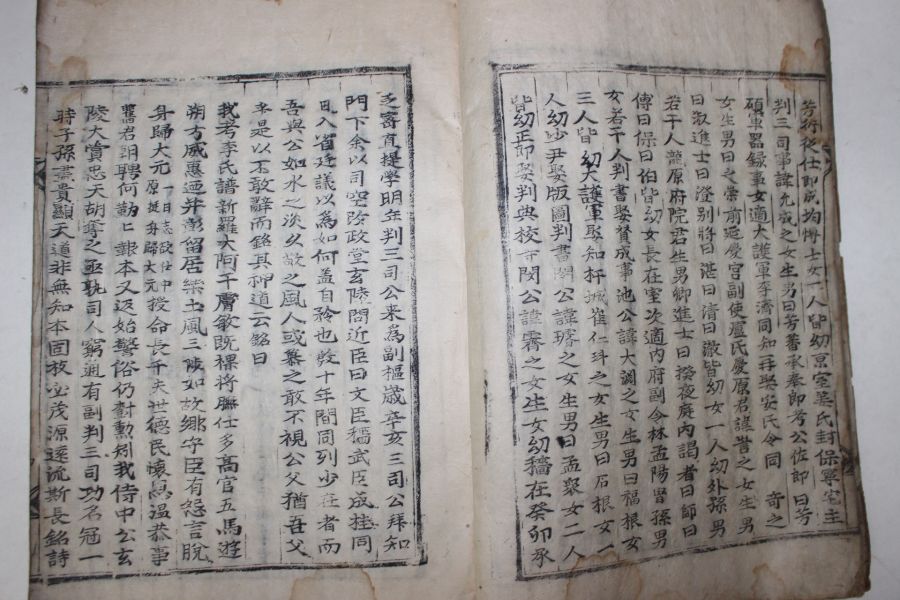 芳術從仕郎成均博士女一人皆幼烹室葉氏封保寧宅主
判三司事諱九成之女生男曰芳蓍承奉郎考公佐郎曰芳
碩軍器録事女適大護軍李濟同知再娶安氏令同 奇之
女生男曰之崇前延慶宮副使盧氏慶原君諱訔之女生男
曰淑進士曰澄別將曰湛曰清曰澈皆幼女一人幼外孫男
若干人龍原府院君生男卿進士曰揆夜庭內謁者曰節曰
傳曰保曰伯皆幼女長在室次適內府副令林孟陽曾孫男
女若干人判書娶賛成事池公諱大調之女生男曰福根女
三人皆幼大護軍娶知杆城崔仁斗之女生男曰石根女一
人幼少尹娶版圖判書閔公諱璿之女生男曰孟眾女二人
皆幼正郎娶判典校寺閔公諱霽之女生女幼穡在癸卯承
乏寄直提學明年判三司公来為副樞歲辛亥三司公拜知
門下余以司空陪政堂玄陵問近臣曰文臣穡武臣成桂同
日入省廷議以為如何盖自矜也數十年間同列少在者而
吾與公如水之淡久故之風人或慕之敢不視公父猶吾父
幸是以不敢辭而銘其神道云銘曰
我考李氏譜新羅大阿干膚敏既祼將聯仕多高官五馬遊
朔方威惠逎并彰留居樂土風三陟如故鄉守臣有怨言脫
身歸大元 一日志欲仕中原挺身歸大元 授命長千夫世德民懷思温恭事
舊君朝聘何勤仁銀本又返始警俗仍對勲矧我侍中公玄
陵大賞忠天胡奪之亟執司人窮通有副判三司功名冠一
時子孫燕貴顯天道非無知本固枝必茂源遠流斯長銘詩